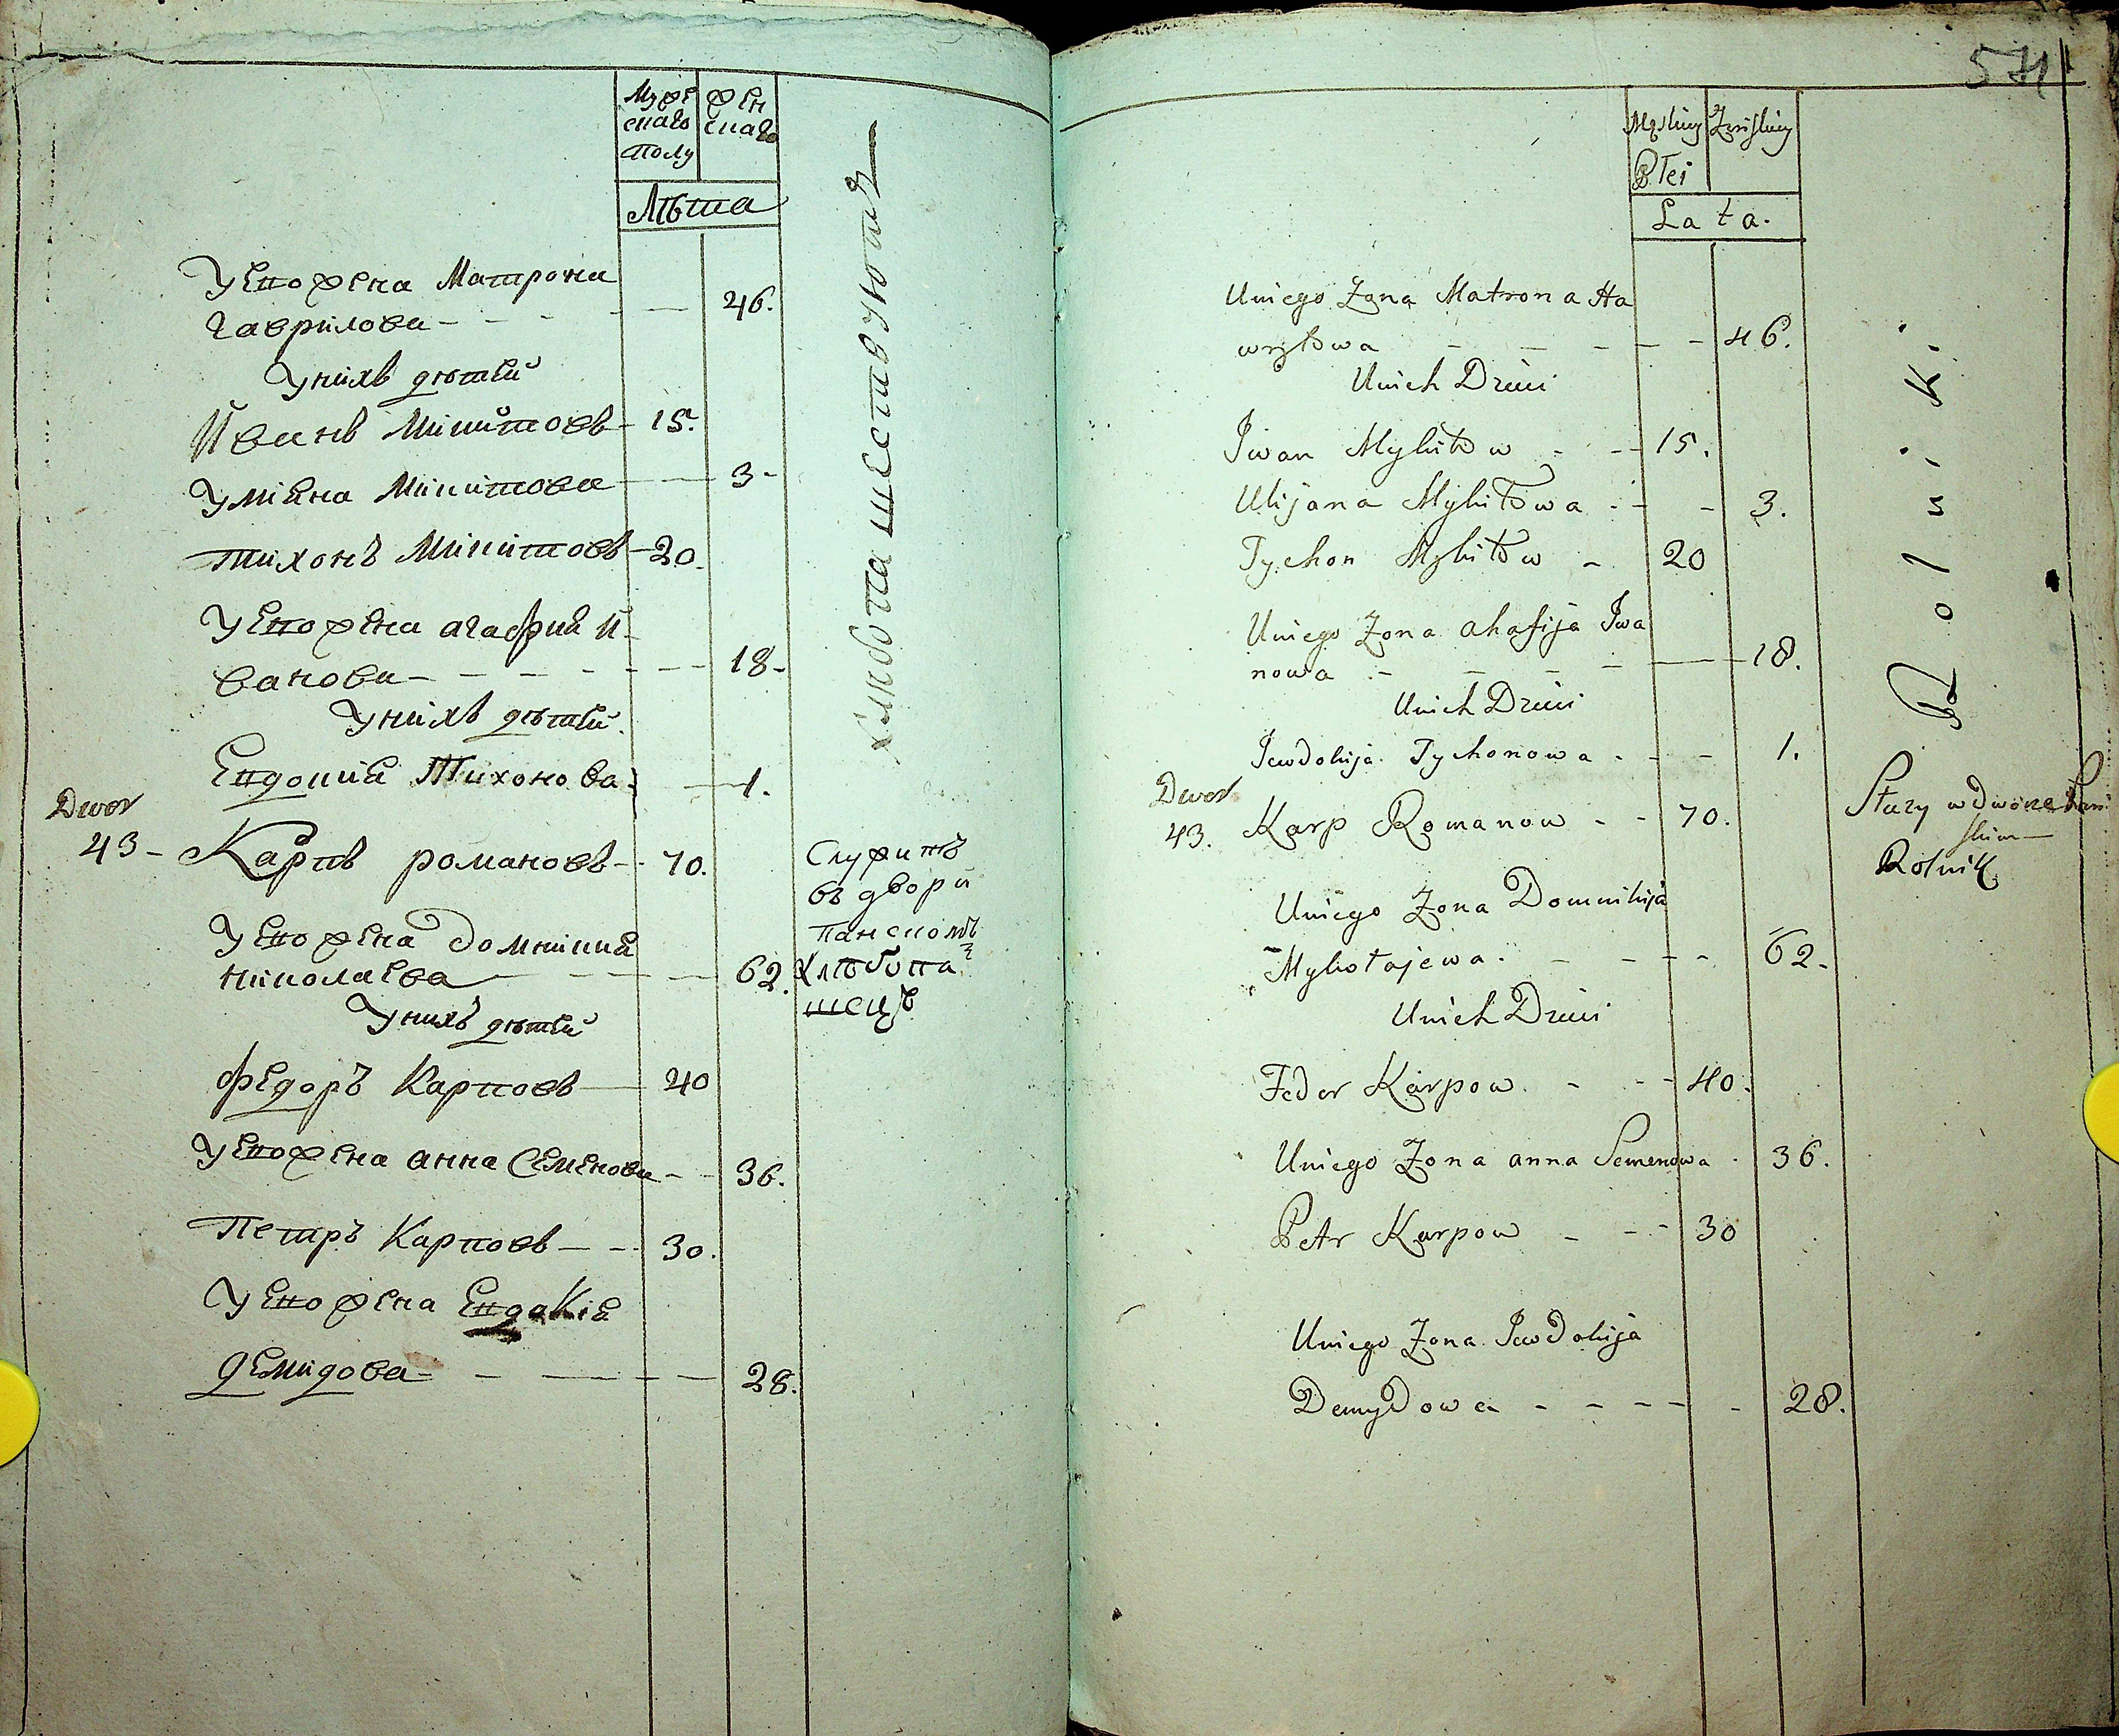 Муже Жен
скаго скаго
полу
Лѣта
Уего жена Матрона
Гаврилова - - - - 46.
Унихъ дѣтей
Иванъ Микитовъ - 15.
Улiяна Микитова - 3 -
Тихонъ Микитовъ - 20.
Уего жена агафия И-
ванова - - - - - 18 -
Унихъ дѣтей.
Евдокия Тихонова - 1.
Dwor
43 - Карпъ романовъ - 70.
Уего жена Домникия
Николаева - - - 62.
Унихъ дѣтей
Федоръ Карповъ - 40
Уего жена анна Семенова - - 36.
Петръ Карповъ - - 30.
Уего жена Евдокiя
демидова - - - - 28.
Служитъ
въ дворѣ
панскомъ
Хлѣбопа
шецъ
571
Męskiey Żeńskiey
Płci
Lata.
Uniego Żona Matrona Ha
wryłowa - - - - - 46.
Unich Dzieci
Iwan Mykitow - - 15.
Ulijana Mykitowa - - 3.
Tychon Mykitow - 20
Uniego Żona ahafija Iwa
nowa - - - - 18.
Unich Dzieci
Jewdokija Tychonowa - - 1.
Dwor
43. Karp Romanow - - 70.
Uniego Żona Domnikija
Mykołajewa. - - - - 62.
Unich Dzieci
Fedor Karpow. - - - 40.
Uniego Żona anna Semenowa - 36.
Petr Karpow - - - 30
Uniego Żona Jewdokija
Demydowa - - - - - 28.
Rolniki.
Służy w dworze Pań
skim
Rolnik